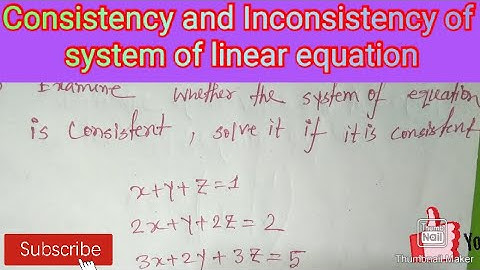 Consistency and Inconsistency of
system of linear equation
Examine whether the system of equation
is consistent, solve it if it is consistent
x+y+z=1
2x+y+2z=2
3x+2y+3z=5
Subscribe
Thumb
Nail
Yo
Thumbnail Maker